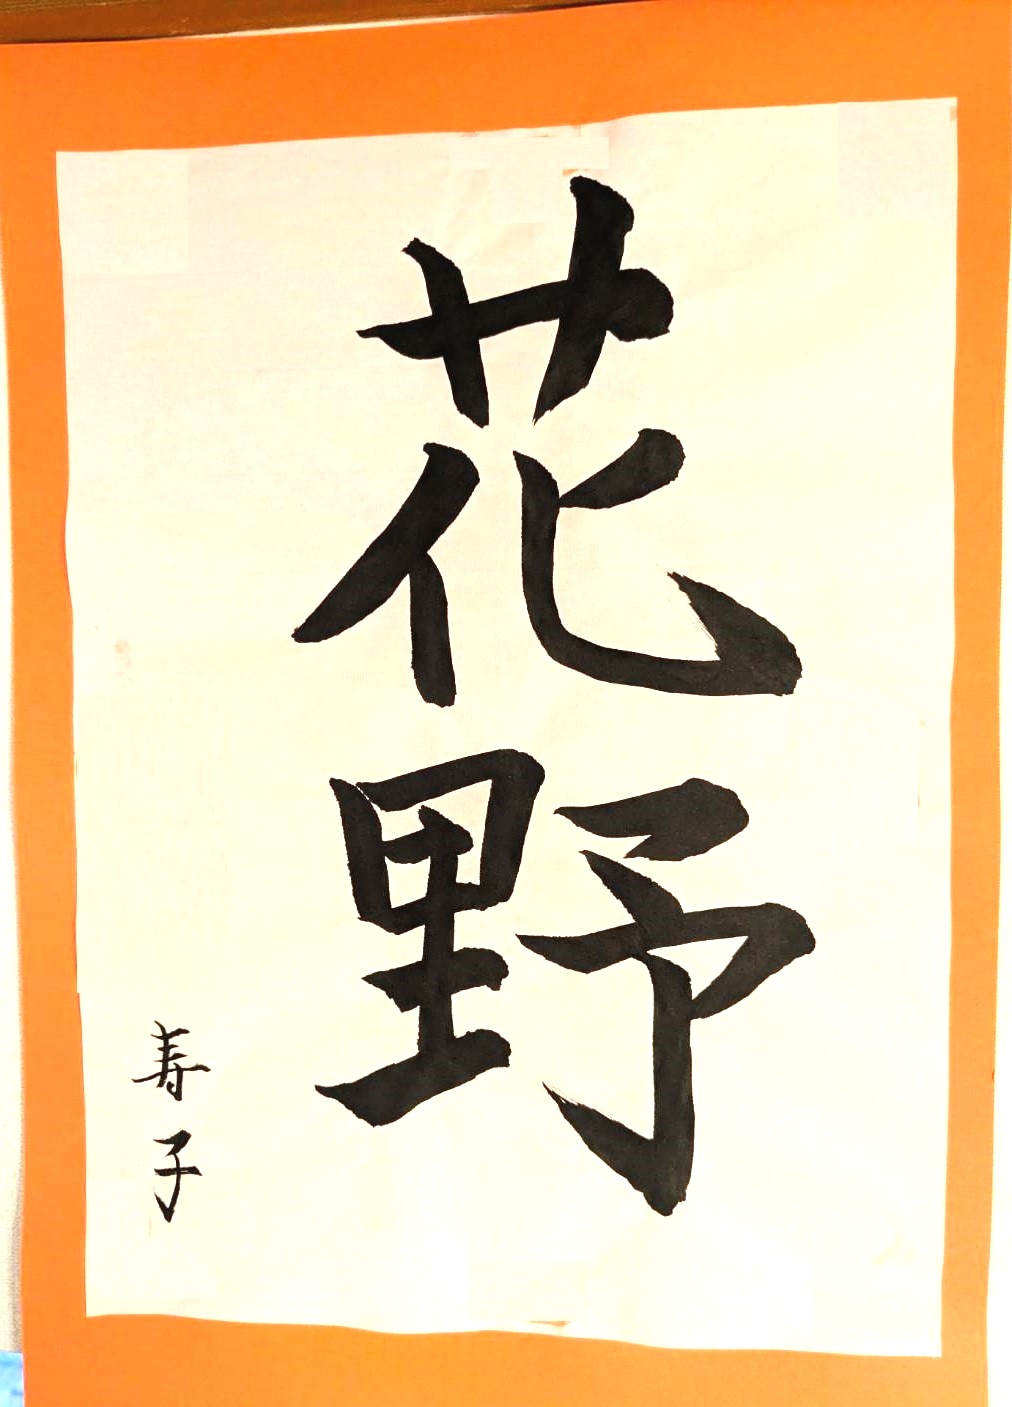 花野
寿子